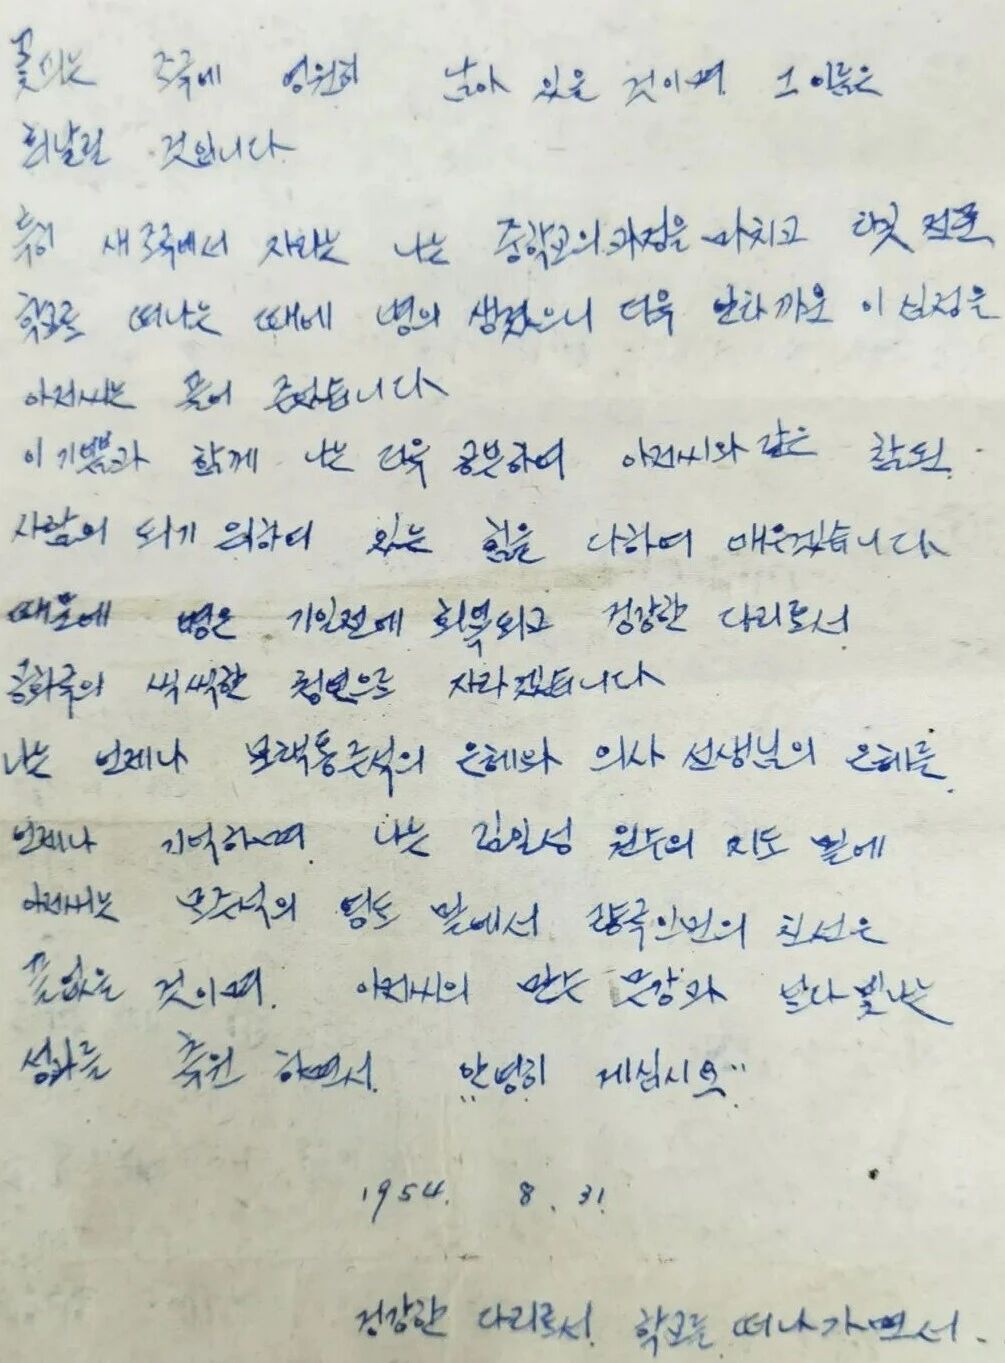 꽃씨는 조국에 영원히 남아 있을 것이며. 그 이름은
휘날릴 것입니다
특히 새 조국에서 자라는 나는 중학교의 과정을 마치고 다못 전문
학교로 떠나는 때에 병의 생겼으니 더욱 안타까운 이 심정을
아저씨는 풀어 주었습니다
이 기쁨과 함께 나는 더욱 공부하여 아저씨와 같은 참된.
사람의 되기 위하여 있는 힘을 다하여 배우겠습니다
때문에 병은 기일전에 회복되고 건강한 다리로서
공화국의 씩씩한 청년으로 자라겠습니다
나는 언제나 모택동주석의 은혜와 의사 선생님의 은혜를.
언제나 기억하며. 나는 김일성 원수의 지도 밑에
아저씨는 모주석의 령도 밑에서 량국인민의 친선은
끝없을 것이며. 아저씨의 만수무강과 날마다 빛나는
성과를 축원 하면서. "안녕히 계십시요"
1954. 8. 31
건강한 다리로서. 학교를 떠나가면서.